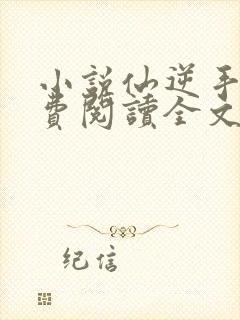 小說仙逆手
費閱讀全文
紀信